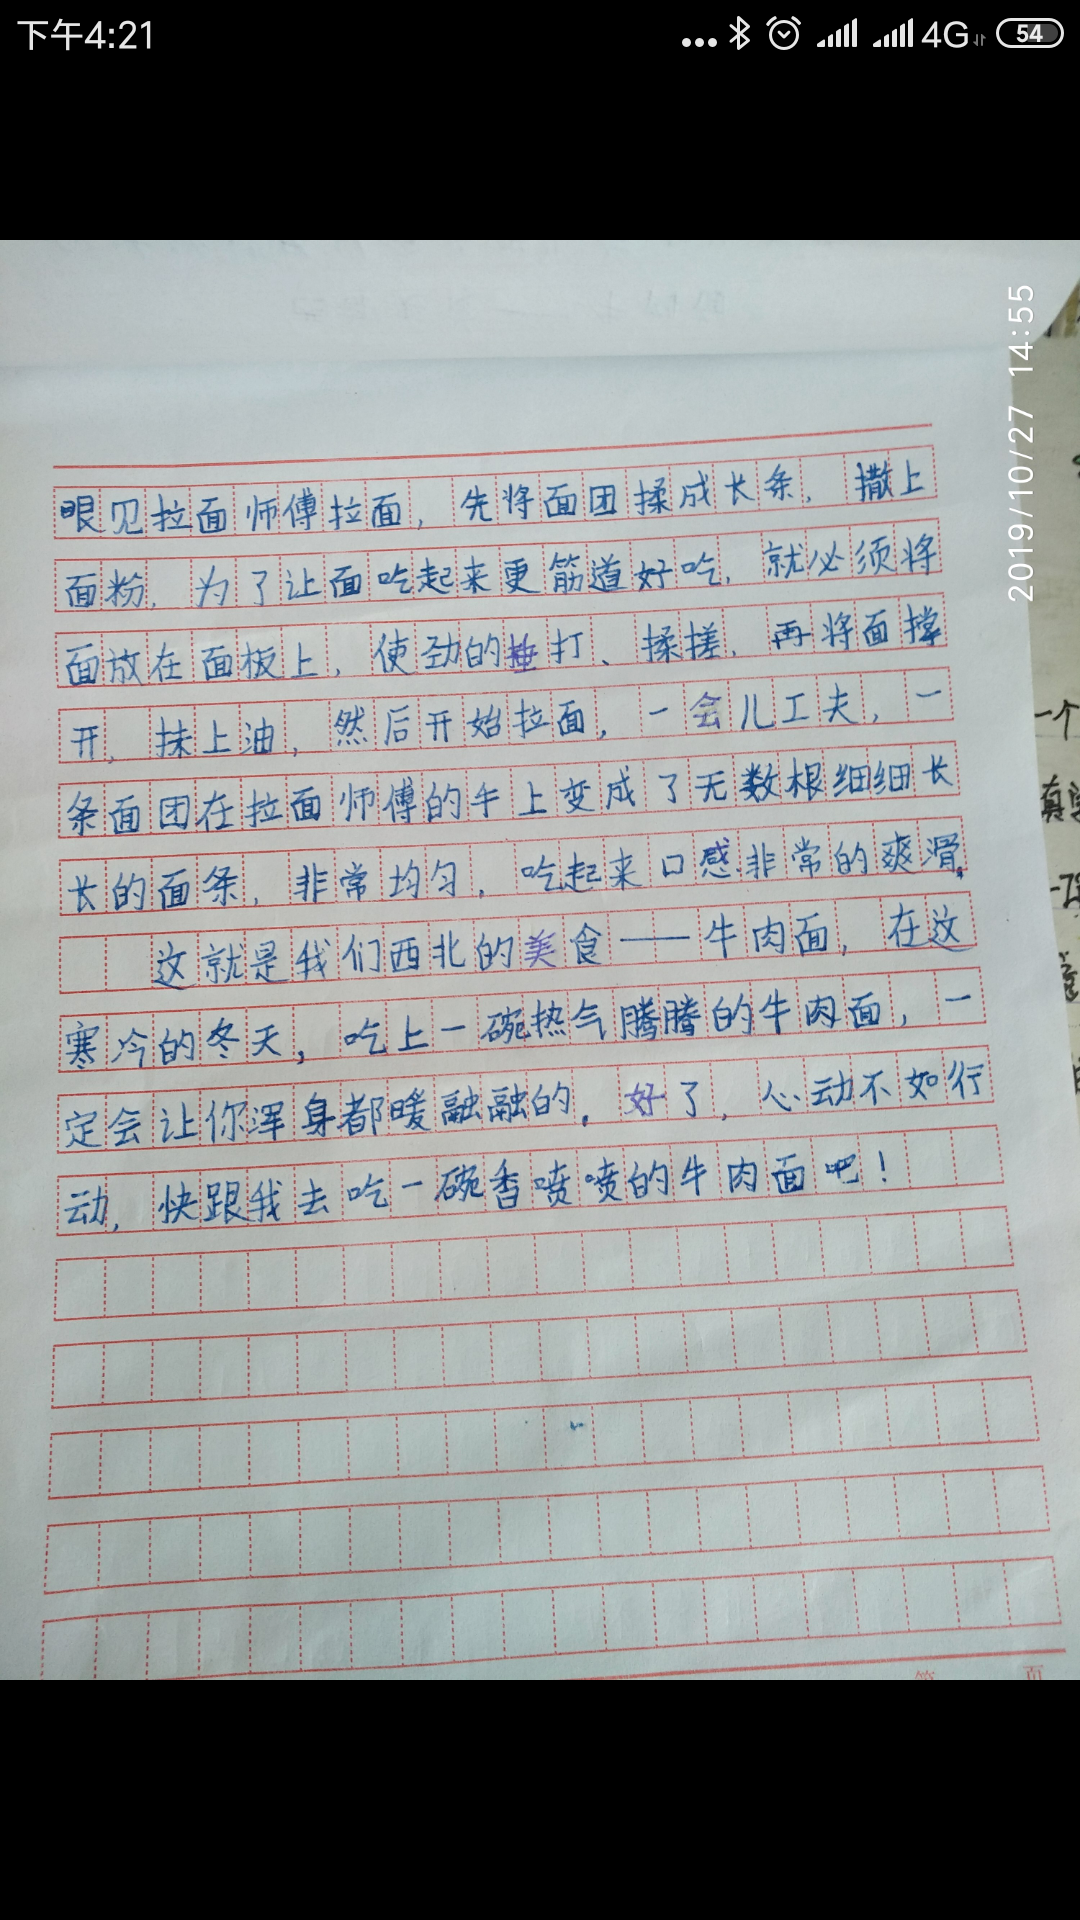 下午4:21
4G 54
2019/10/27 14:55
眼见拉面师傅拉面，先将面团揉成长条，撒上
面粉，为了让面吃起来更筋道好吃，就必须将
面放在面板上，使劲的捶打、揉搓，再将面撑
开，抹上油，然后开始拉面，一会儿工夫，一
条面团在拉面师傅的手上变成了无数根细细长
长的面条，非常均匀，吃起来口感非常的爽滑。
这就是我们西北的美食——牛肉面，在这
寒冷的冬天，吃上一碗热气腾腾的牛肉面，一
定会让你浑身都暖融融的。好了，心动不如行
动，快跟我去吃一碗香喷喷的牛肉面吧！
一个